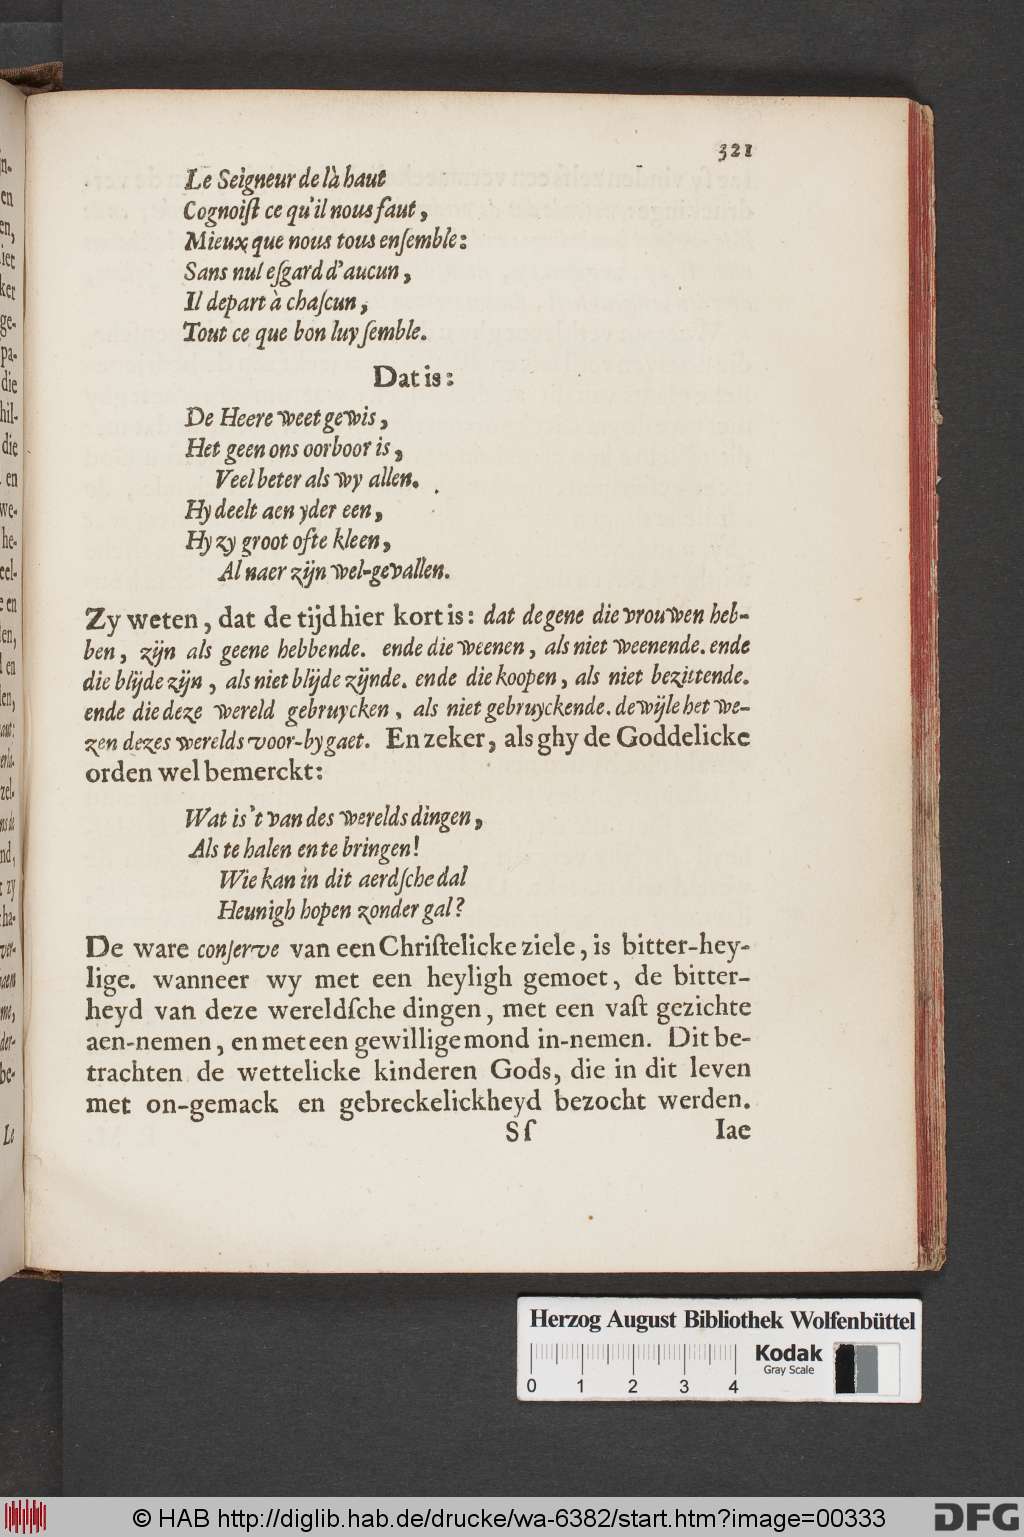 321
Le Seigneur de là haut
Cognoiſt ce qu'il nous faut,
Mieux que nous tous enſemble:
Sans nul eſgard d'aucun,
Il depart à chaſcun,
Tout ce que bon luy ſemble.
Dat is:
De Heere weet gewis,
Het geen ons oorboor is,
Veel beter als wy allen.
Hy deelt aen yder een,
Hy zy groot ofte kleen,
Al naer zijn wel-gevallen.
Zy weten, dat de tijd hier kort is: dat de gene die vrouwen heb-
ben, zijn als geene hebbende. ende die weenen, als niet weenende. ende
die blijde zijn, als niet blijde zijnde. ende die koopen, als niet bezittende.
ende die deze wereld gebruycken, als niet gebruyckende. de wijle het we-
zen dezes werelds voor-by gaet. En zeker, als ghy de Goddelicke
orden wel bemerckt:
Wat is't van des werelds dingen,
Als te halen en te bringen!
Wie kan in dit aerdſche dal
Heunigh hopen zonder gal?
De ware conſerve van een Chriſtelicke ziele, is bitter-hey-
lige. wanneer wy met een heyligh gemoet, de bitter-
heyd van deze wereldſche dingen, met een vaſt gezichte
aen-nemen, en met een gewillige mond in-nemen. Dit be-
trachten de wettelicke kinderen Gods, die in dit leven
met on-gemack en gebreckelickheyd bezocht werden.
Sſ Iae
Herzog August Bibliothek Wolfenbüttel
Kodak
Gray Scale
0 1 2 3 4
© HAB http://diglib.hab.de/drucke/wa-6382/start.htm?image=00333
DFG